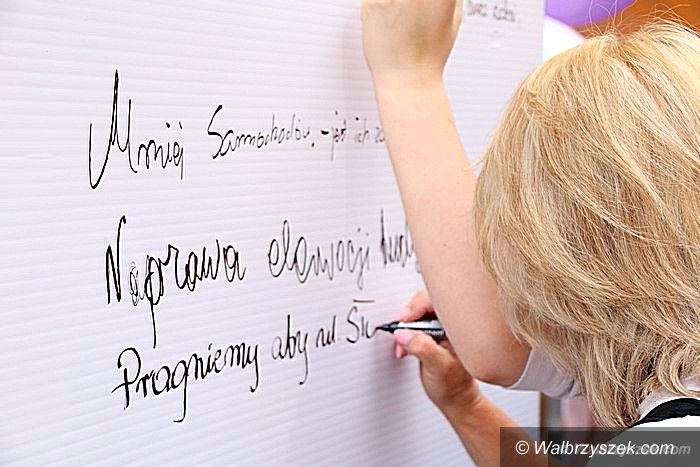 Mniej Samochodów, - jest ich za
Naprawa elewacji budy
Pragniemy aby ul
© Walbrzyszek.com